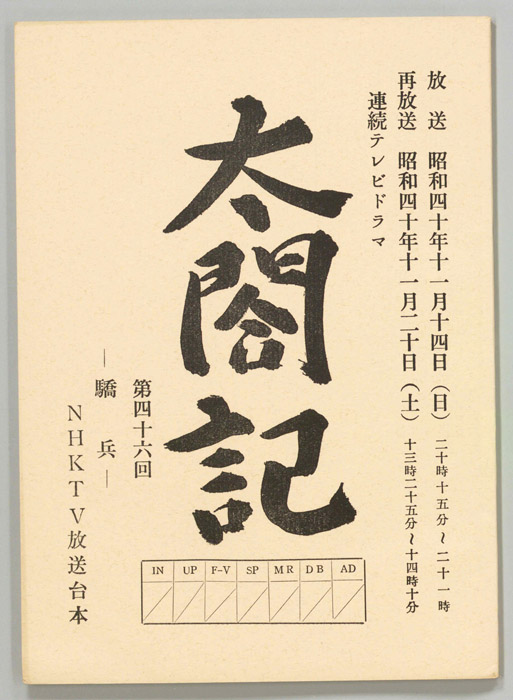 放送 昭和四十年十一月十四日（日） 二十時十五分〜二十一時
再放送 昭和四十年十一月二十日（土） 十三時二十五分〜十四時十分
連続テレビドラマ
太閤記
第四十六回
―驕兵―
NHKTV放送台本
IN UP F-V SP MR DB AD